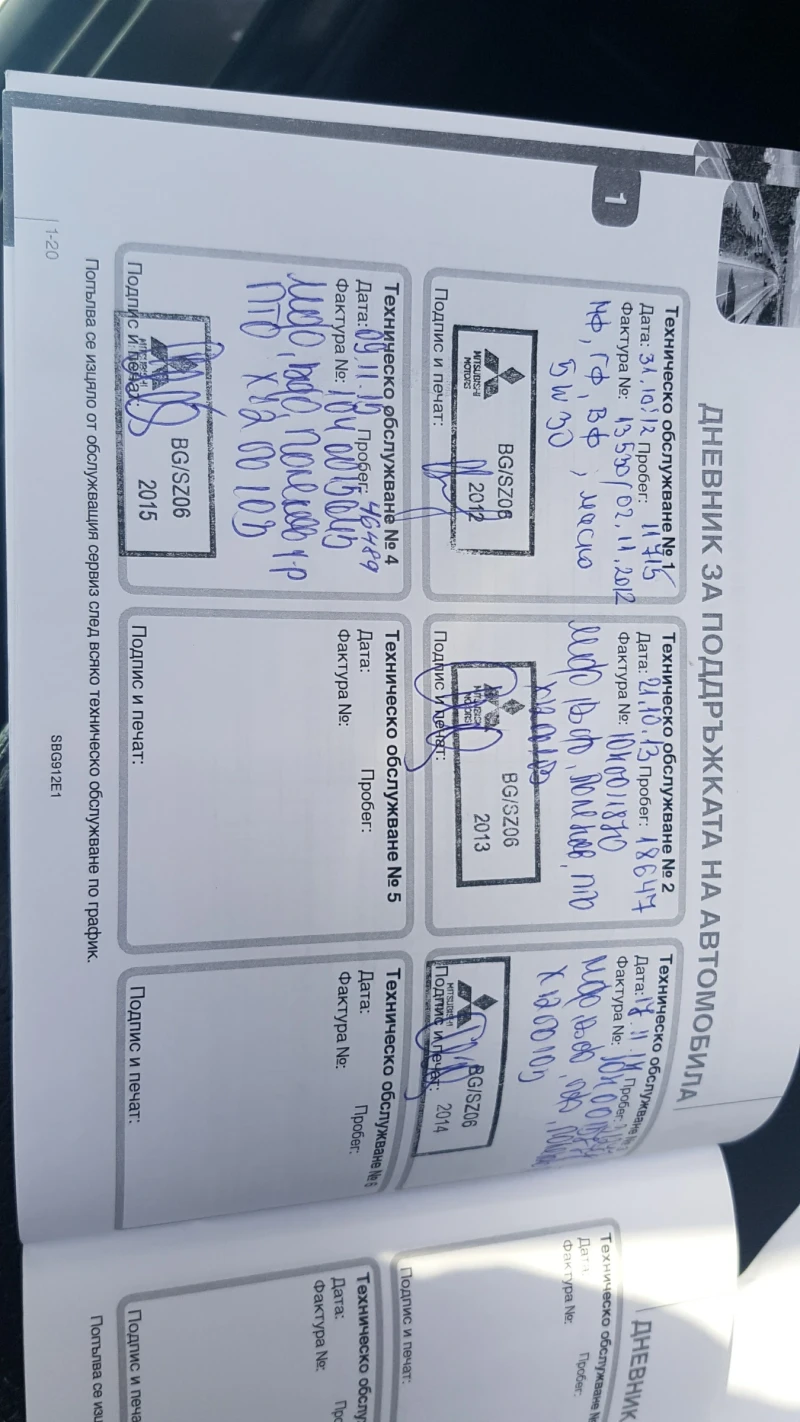 ДНЕВНИК ЗА ПОДДРЪЖКАТА НА АВТОМОБИЛА
1
Техническо обслужване № 1
Дата: 31.10.12 Пробег: 11715
Фактура №: 13530/02.11.2012
МФ, ГФ, ВФ, масло
5W30
Подпис и печат:
MITSUBISHI
MOTORS
BG/SZ06
2012
Техническо обслужване № 2
Дата: 21.10.13 Пробег: 18647
Фактура №: 1040011870
Подпис и печат:
MITSUBISHI
MOTORS
BG/SZ06
2013
Техническо обслужване № 3
Дата: 17.11.14 Пробег:
Фактура №:
Подпис и печат:
MITSUBISHI
BG/SZ06
2014
Техническо обслужване № 4
Дата: 09.11.15 Пробег: 46489
Фактура №: 1040015045
Подпис и печат:
BG/SZ06
2015
Техническо обслужване № 5
Дата: Пробег:
Фактура №:
Подпис и печат:
Техническо обслужване № 6
Дата: Пробег:
Фактура №:
Подпис и печат:
Попълва се изцяло от обслужващия сервиз след всяко техническо обслужване по график.
1-20
SBG912E1
ДНЕВНИК
Техническо обслужване №
Дата: Пробег:
Фактура №:
Подпис и печат:
Техническо обслу
Дата: Про
Фактура №:
Подпис и печа
Попълва се изц